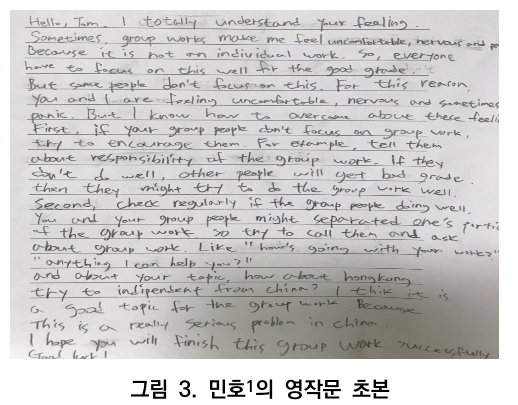 Hello, Tom. I totally understand your feeling.
Sometimes, group works make me feel uncomfortable, nervous and
Because it is not an individual work. So, everyone
have to focus on this well for the good grade
But some people don't focus on this. For this reason,
You and I are feeling uncomfortable, nervous and sometimes
panic. But I know how to overcome about these feeli
First, if your group people don't focus on group work,
try to encourage them. For example, tell them
about responsibility of the group work. If they
don't do well, other people will get bad grade.
then they might try to do the group work well.
Second, check regularly if the group people doing well.
You and your group people might separated one's
of the group work so try to call them and ask
about group work. Like "how's going with your work?"
"anything I can help you?"
and about your topic, how about hongkong
try to indipendent from china? I thik it is
a good topic for the group work Because
This is a really serious problem in china.
I hope you will finish this group work successfully
Good luck!
그림 3. 민호1의 영작문 초본